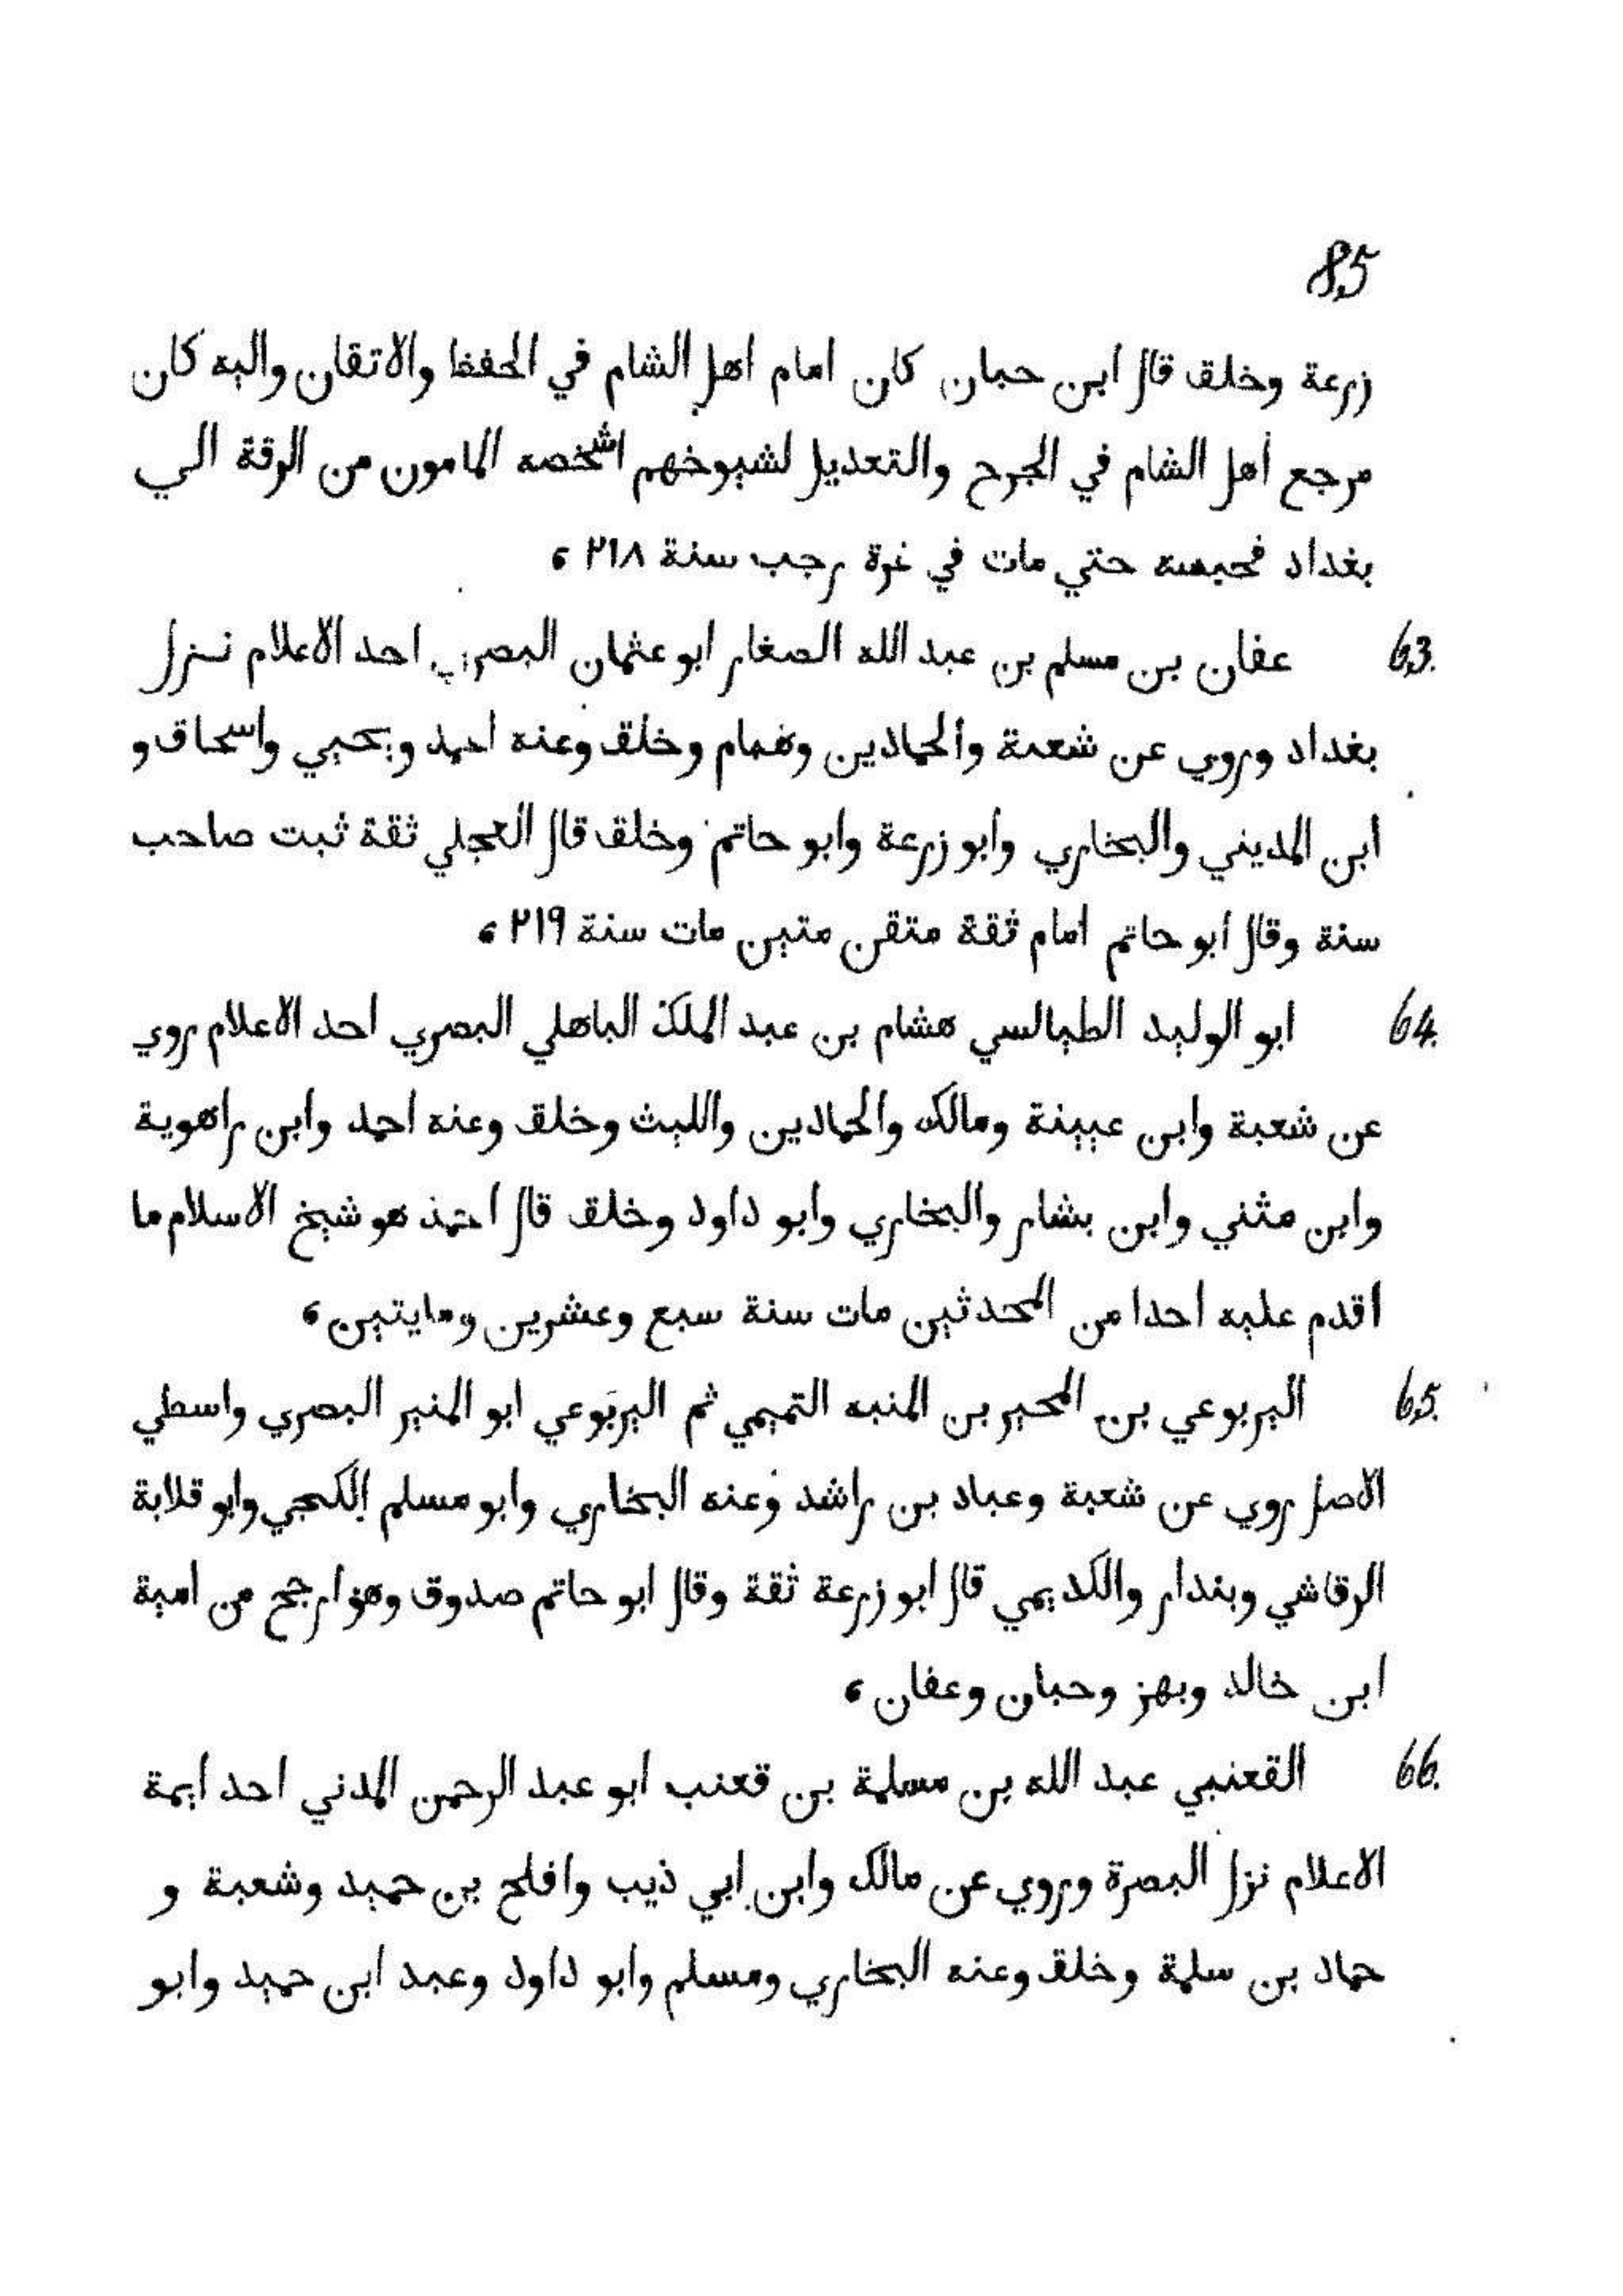 85
زرعة وخلق قال ابن حبان كان امام اهل الشام في الحفظ والاتقان واليه كان
مرجع أهل الشام في الجرح والتعديل لشيوخهم اشخصه المامون من الرقة الي
بغداد فحبسه حتي مات في غرة رجب سنة ٢١٨ ،
63. عفان بن مسلم بن عبد الله الصغار ابو عثمان البصري احد الاعلام نزل
بغداد وروي عن شعبة والحمادين وهمام وخلق وعنه احمد ويحيي واسحاق و
ابن المديني والبخاري وابو زرعة وابو حاتم وخلق قال العجلي ثقة ثبت صاحب
سنة وقال أبو حاتم امام ثقة متقن متين مات سنة ٢١٩ ،
64. ابو الوليد الطيالسي هشام بن عبد الملك الباهلي البصري احد الاعلام روي
عن شعبة وابن عيينة ومالك والحمادين والليث وخلق وعنه احمد وابن راهوية
وابن مثني وابن بشار والبخاري وابو داود وخلق قال احمد هو شيخ الاسلام ما
اقدم عليه احدا من المحدثين مات سنة سبع وعشرين ومايتين ،
65. اليربوعي بن المحبر بن المنبه التميمي ثم اليربوعي ابو المنير البصري واسطي
الاصل روي عن شعبة وعباد بن راشد وعنه البخاري وابو مسلم الكجي وابو قلابة
الرقاشي وبندار والكديمي قال ابو زرعة ثقة وقال ابو حاتم صدوق وهو ارجح من امية
ابن خالد وبهز وحبان وعفان ،
66. القعنبي عبد الله بن مسلمة بن قعنب ابو عبد الرحمن المدني احد أيمة
الاعلام نزل البصرة وروي عن مالك وابن ابي ذيب وافلح بن حميد وشعبة و
حماد بن سلمة وخلق وعنه البخاري ومسلم وابو داود وعبد ابن حميد وابو